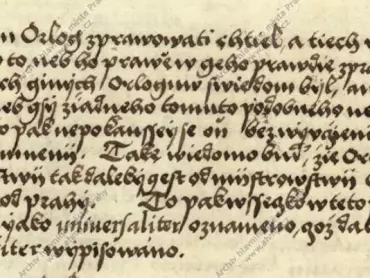 Orlog zprawowati chtiel, a tiech
to, neb ho prawě w geho prawdie zpra
ch giných Orloguw swiekom byl, an
neb gsy ziadneho tomuto podobneho ne
pak nepokaussey se on bez wyvcjenij
vmienij. Také wiedomo bud, zie Or
stwij tak daleky gest od mijstrowstwij
od prahy. To pak wssecko w teto
yako uniuersaliter oznameno, což dal
liter wypisowano.